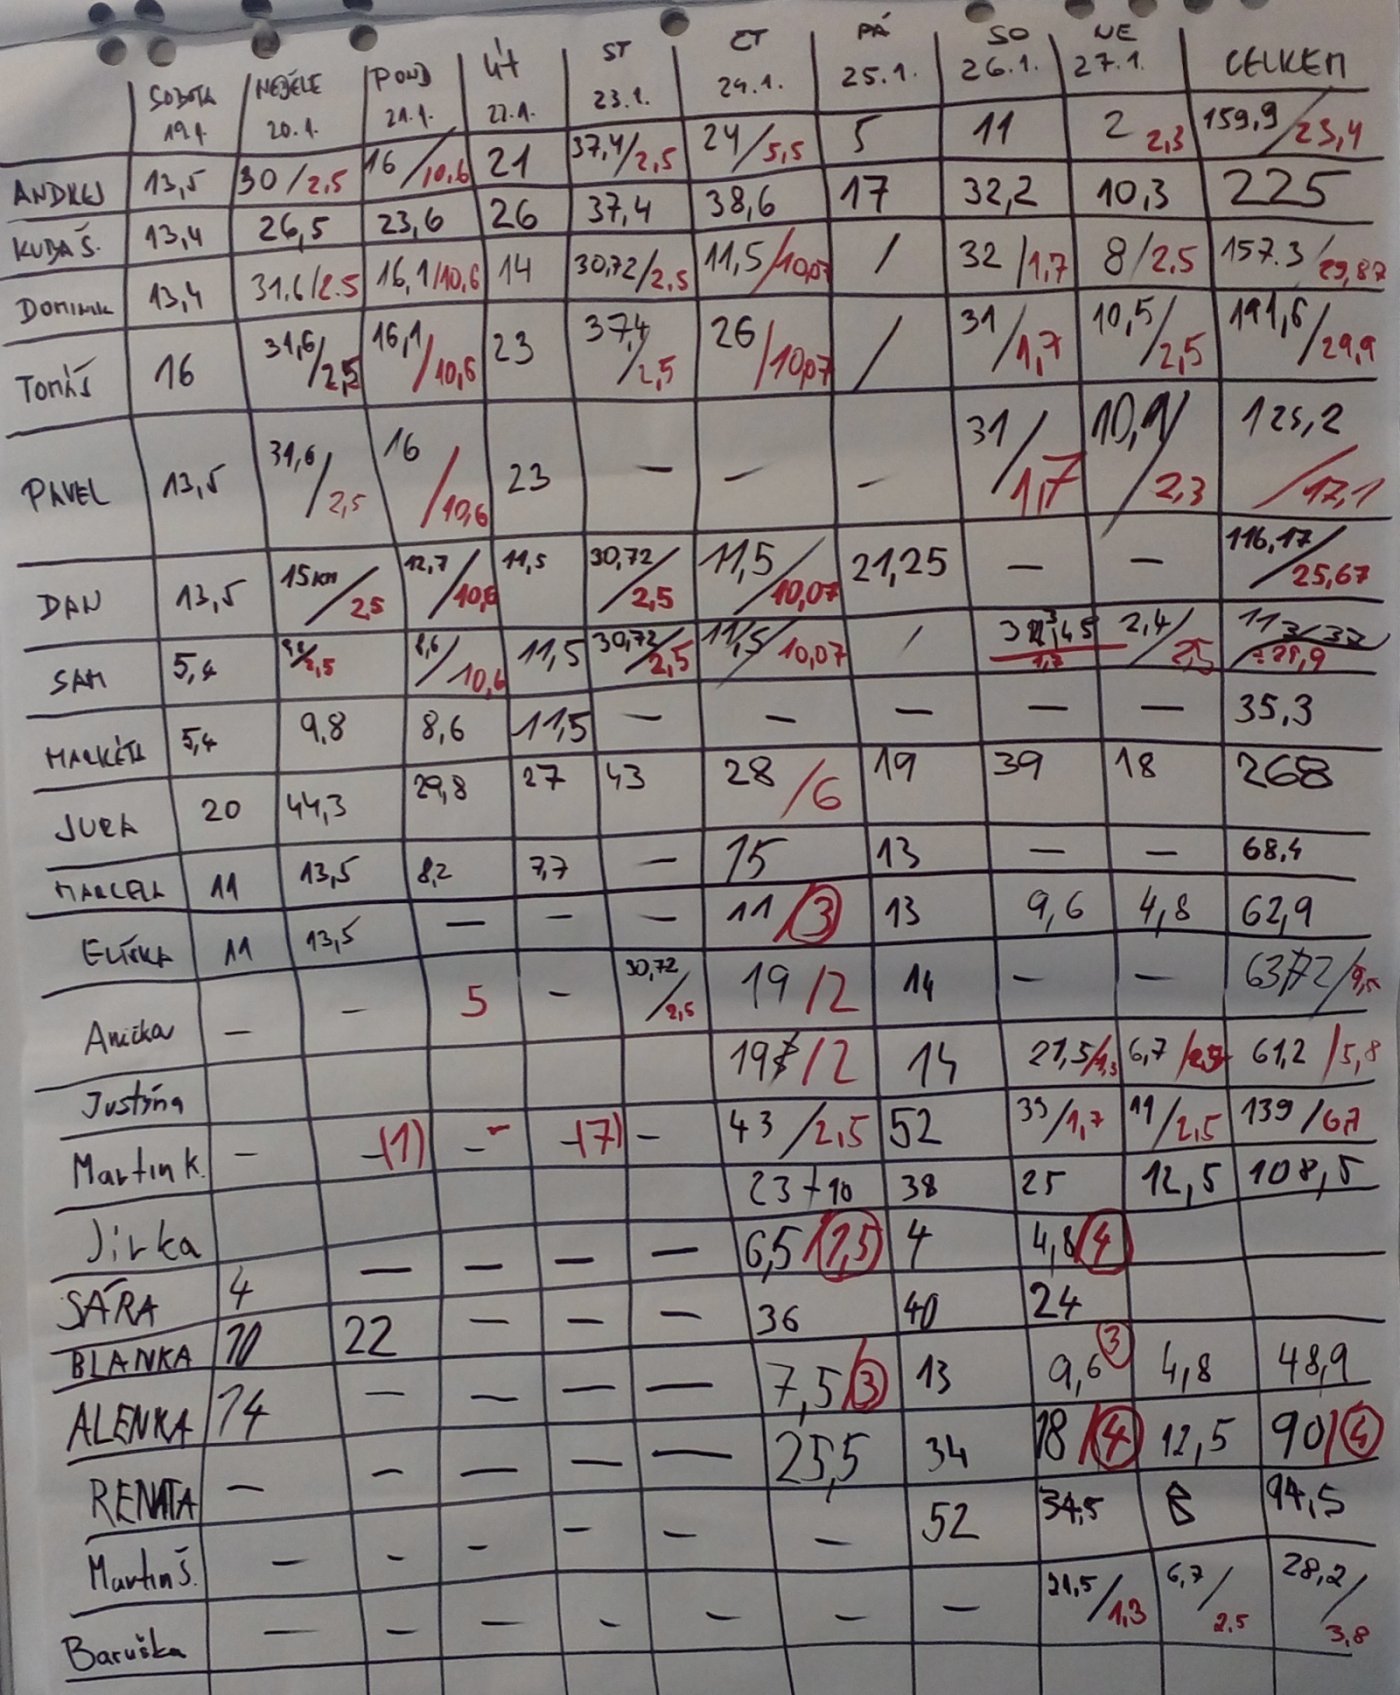 SOBOTA 19.1. NEDĚLE 20.1. POND 21.1. ÚT 22.1. ST 23.1. ČT 24.1. PÁ 25.1. SO 26.1. NE 27.1. CELKEM
ANDREJ 13,5 30/2,5 16/10,6 21 37,4/2,5 24/5,5 5 11 2 2,3 159,9/23,4
KUBA Š. 13,4 26,5 23,6 26 37,4 38,6 17 32,2 10,3 225
DOMINIK 13,4 31.6/2.5 16,1/10,6 14 30,72/2,5 11,5/10,07 / 32/1,7 8/2,5 157.3/29,87
TOMÁŠ 16 31,6/2,5 16,1/10,6 23 37,4/2,5 26/10,07 / 31/1,7 10,5/2,5 191,6/29,9
PAVEL 13,5 31,6/2,5 16/10,6 23 – – – 31/1,7 10,1/2,3 125,2/17,1
DAN 13,5 15km/2,5 12,7/10,6 11,5 30,72/2,5 11,5/10,07 21,25 – – 116,17/25,67
SAM 5,4 /2,5 8,6/10,6 11,5 30,72/2,5 11,5/10,07 / 1,7 2,4/2,5
MARKÉTA 5,4 9,8 8,6 11,5 – – – – – 35,3
JURA 20 44,3 29,8 27 43 28/6 19 39 18 268
MARCELA 11 13,5 8,2 7,7 – 15 13 – – 68,4
ELIŠKA 11 13,5 – – – 11/3 13 9,6 4,8 62,9
Anička – – 5 – 30,72/2,5 19/2 14 – – 63,72/9,5
Justýna 19/2 14 21,5/1,3 6,7/2,5 61,2/5,8
Martin K. – -(1) – -(7) – 43/2,5 52 33/1,7 11/2,5 139/6,7
Jirka 23+10 38 25 12,5 108,5
SÁRA 4 – – – – 6,5/1,5 4 4,8/4
BLANKA 10 22 – – – 36 40 24
ALENKA 14 – – – – 7,5/3 13 9,6 3 4,8 48,9
RENATA – – – – – 25,5 34 18/4 12,5 90/4
Martin Š. – – – – – – 52 34,5 8 94,5
Baruška – – – – – – – 21,5/1,3 6,7/2,5 28,2/3,8